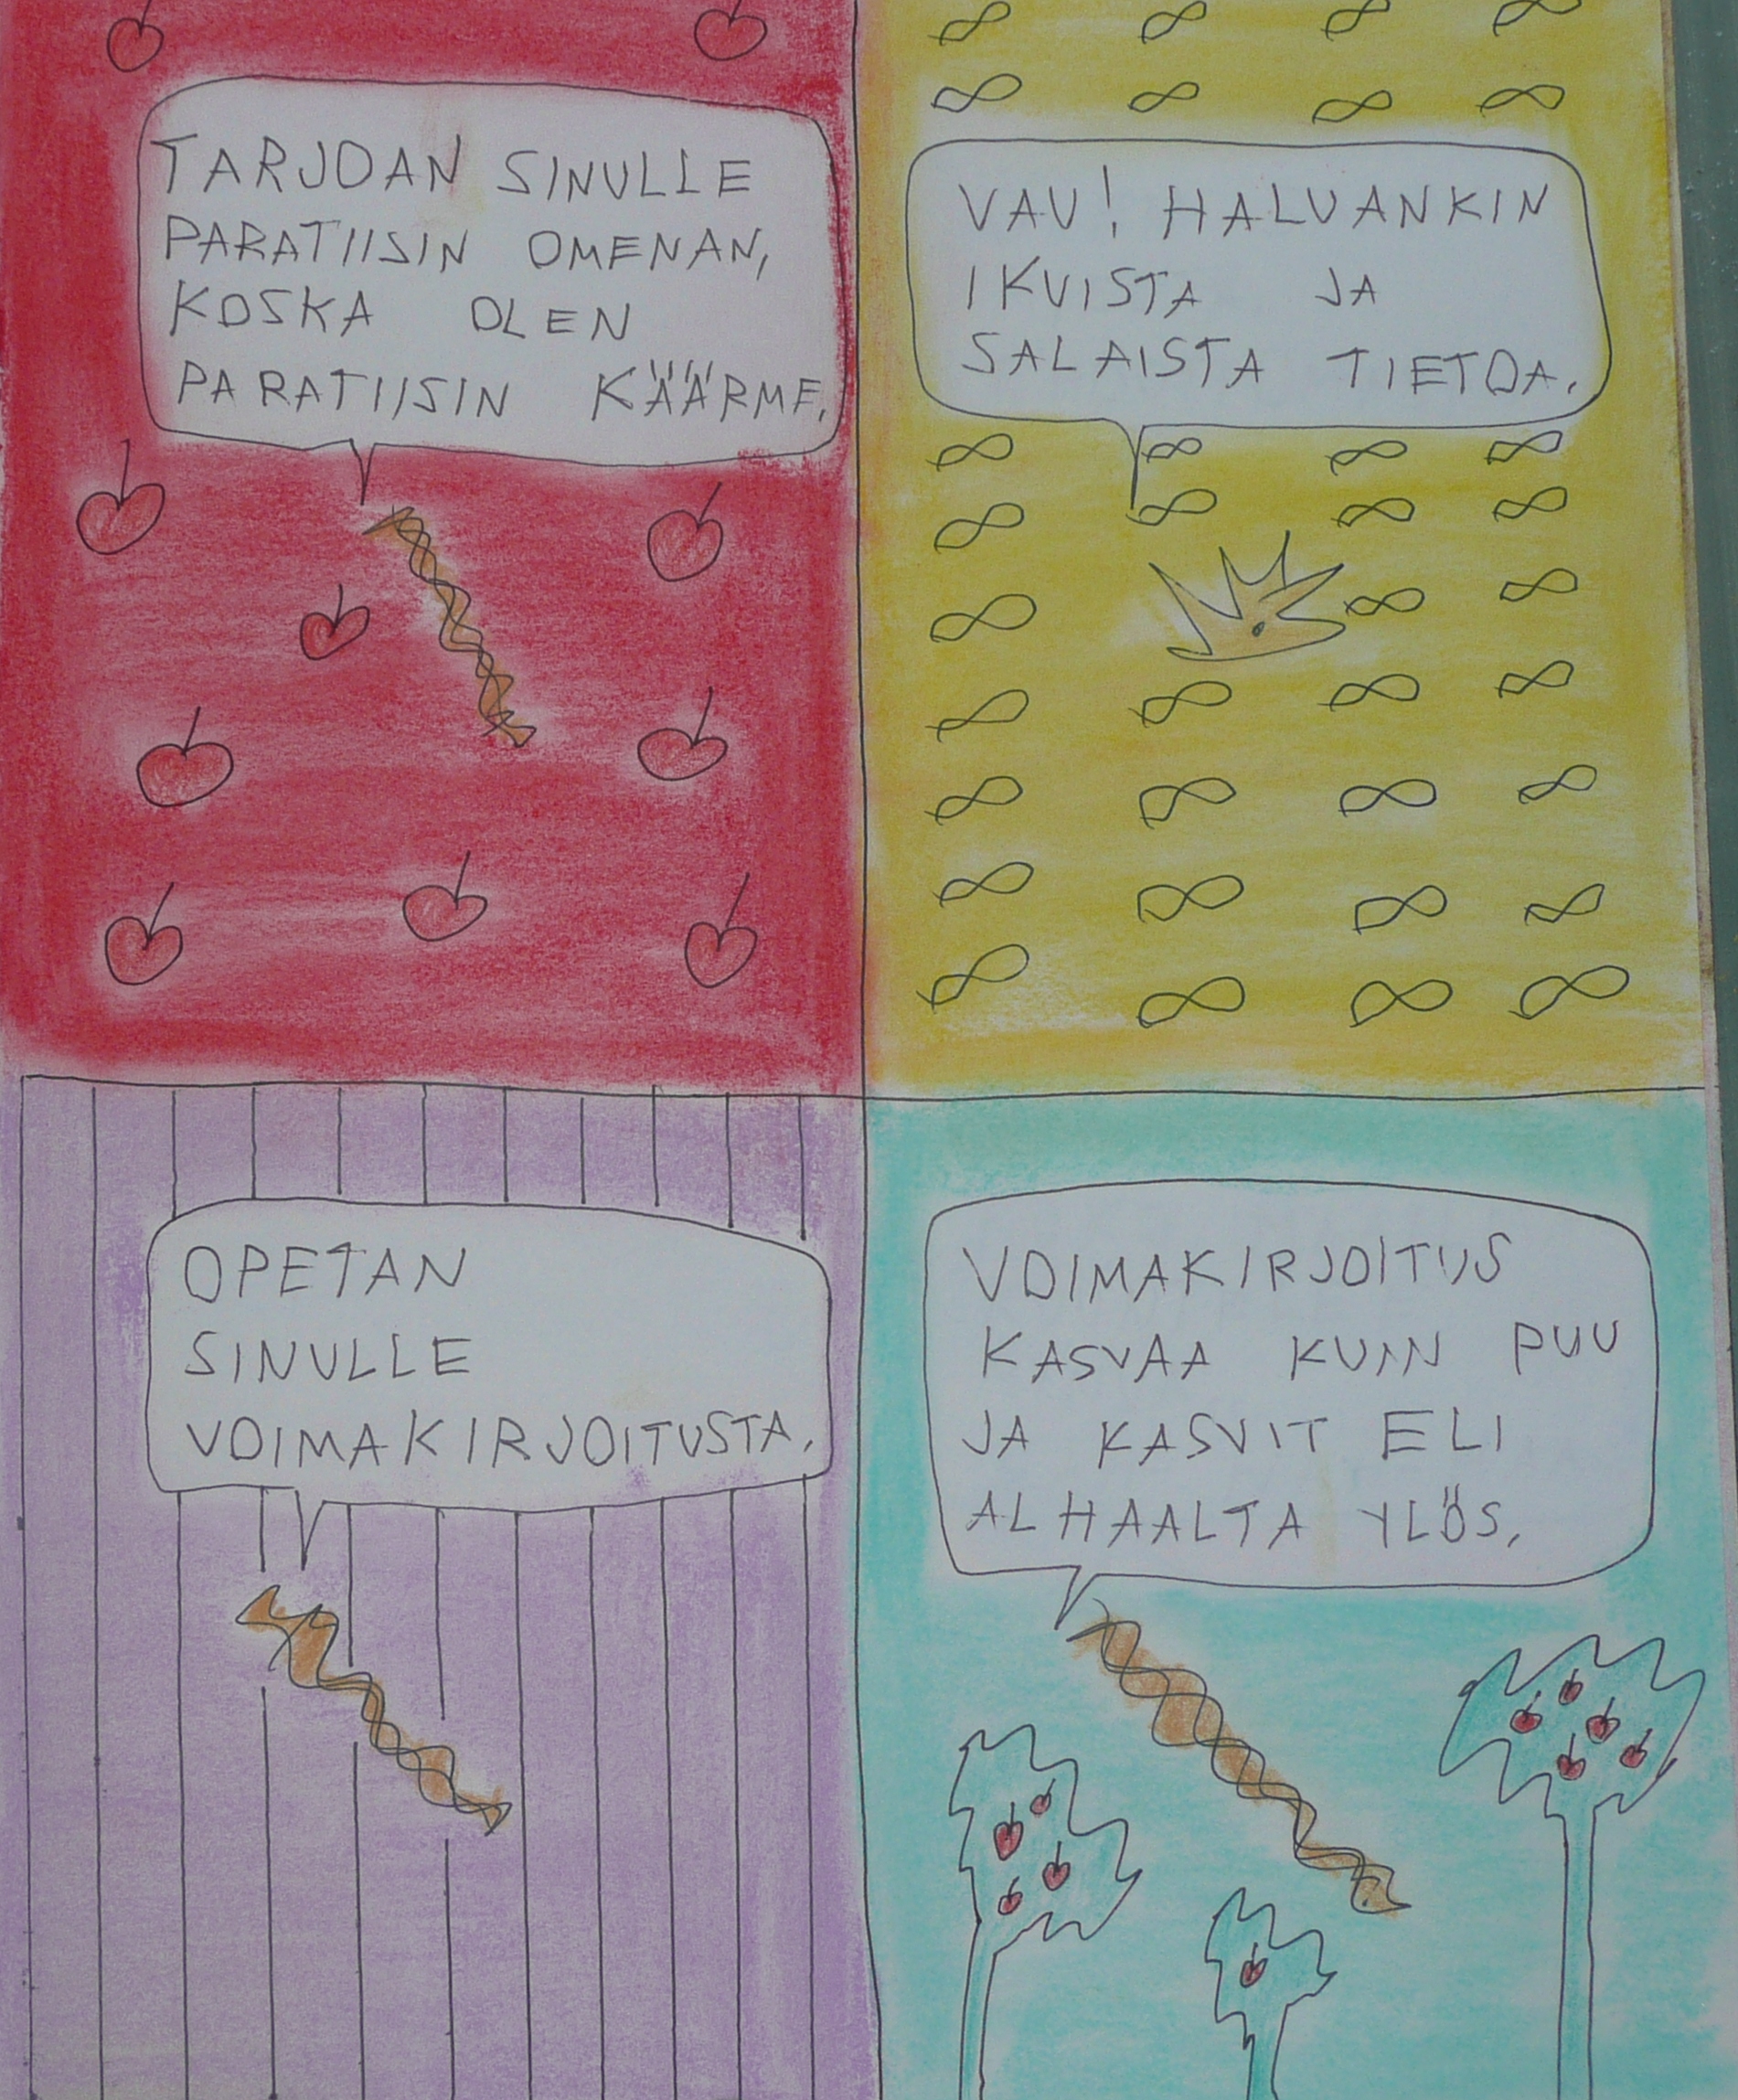 TARJOAN SINULLE
PARATIISIN OMENAN,
KOSKA OLEN
PARATIISIN KÄÄRME.
VAU! HALUANKIN
IKUISTA JA
SALAISTA TIETOA.
OPETAN
SINULLE
VOIMAKIRJOITUSTA.
VOIMAKIRJOITUS
KASVAA KUIN PUU
JA KASVIT ELI
ALHAALTA YLÖS.